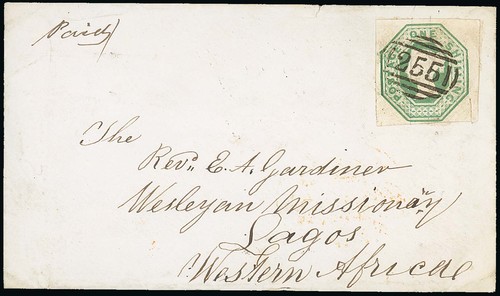 Paid
POSTAGE ONE SHILLING
255
The
Revd. E. A. Gardiner
Wesleyan Missionary
Lagos
Western Africa